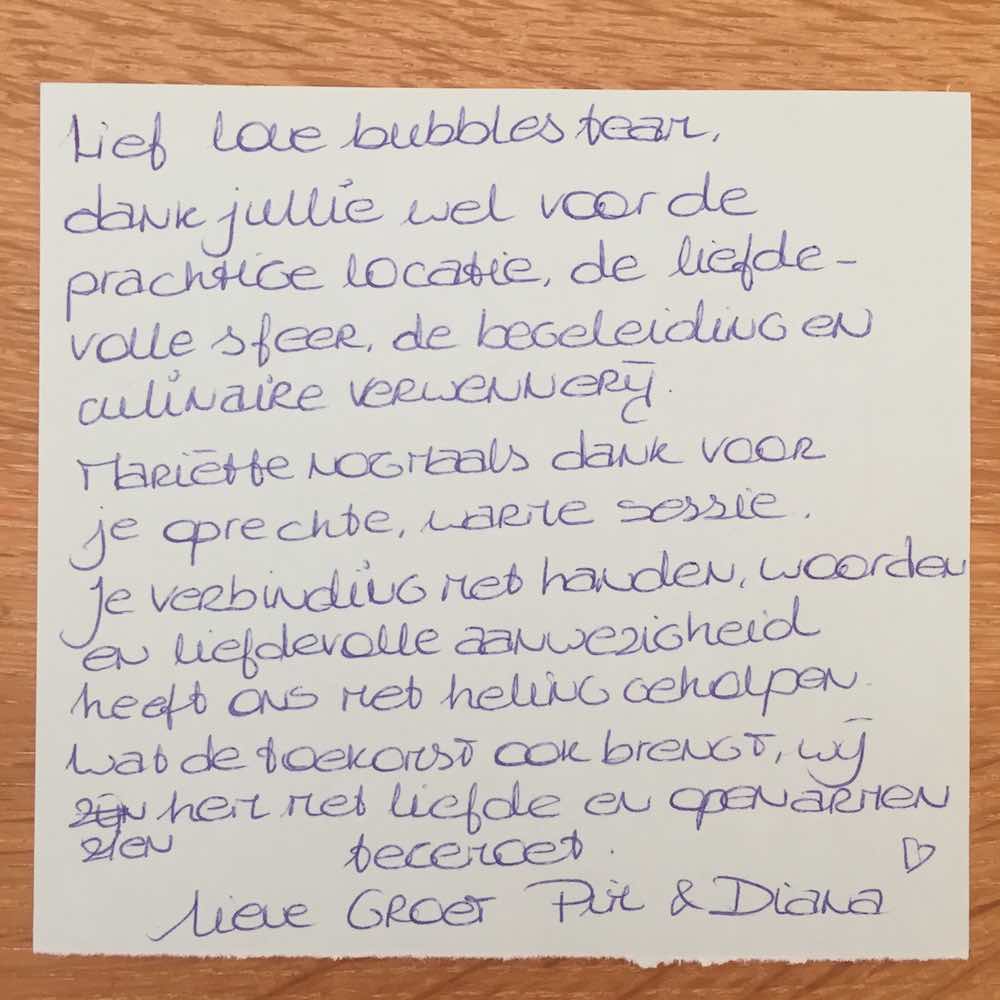 Lief love bubbles team,
dank jullie wel voor de
prachtige locatie, de liefde-
volle sfeer, de begeleiding en
culinaire verwennerij.
Mariëtte nogmaals dank voor
je oprechte, warme sessie.
Je verbinding met handen, woorden
en liefdevolle aanwezigheid
heeft ons met heling geholpen.
wat de toekomst ook brengt, wij
zien hem met liefde en open armen
tegemoet.
Lieve Groet Pim & Diana